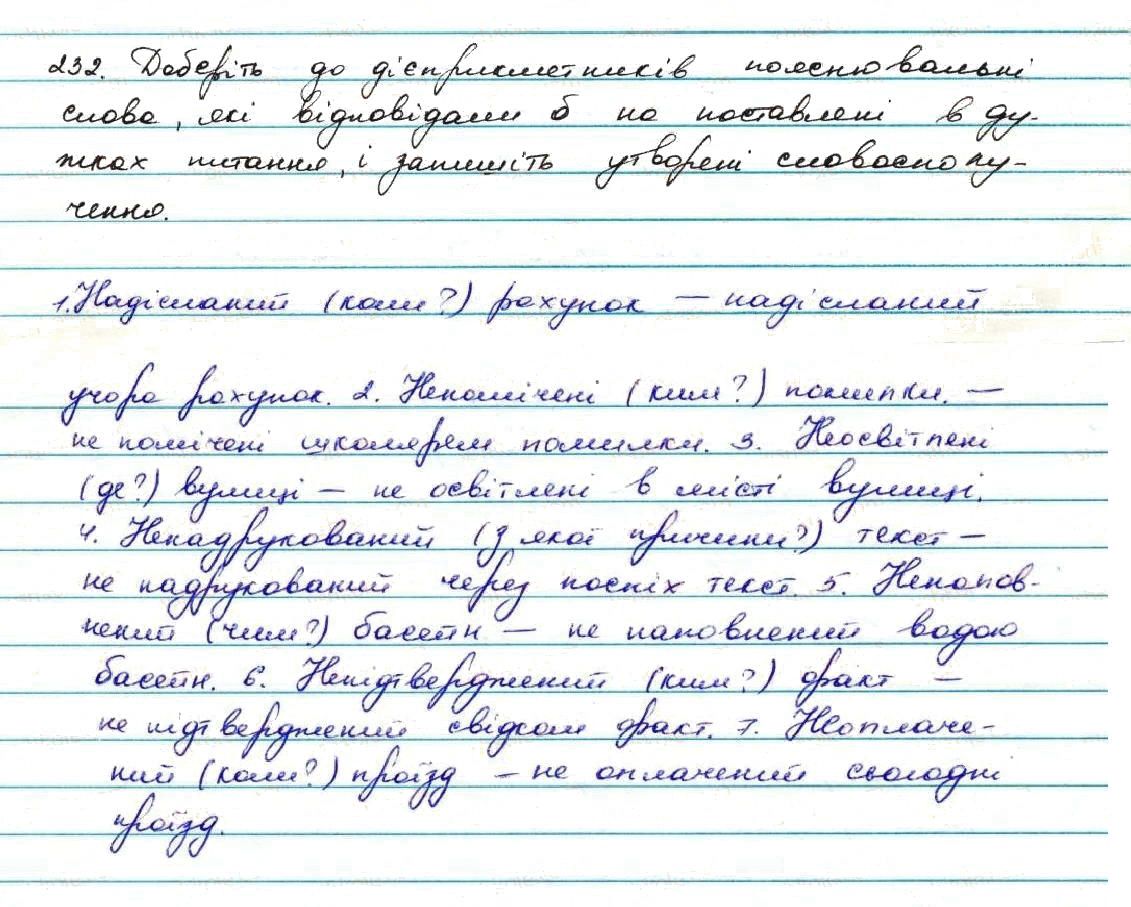 232. Доберіть до дієприкметників пояснювальні
слова, які відповідали б на поставлені в ду-
жках питання, і запишіть утворені словосполу-
чення.
1. Надісланий (коли?) рахунок — надісланий
учора рахунок. 2. Непомічені (ким?) помилки. —
не помічені школярем помилки. 3. Неосвітлені
(де?) вулиці — не освітлені в місті вулиці.
4. Ненадрукований (з якої причини?) текст —
не надрукований через поспіх текст. 5. Ненапов-
нений (чим?) басейн — не наповнений водою
басейн. 6. Непідтверджений (ким?) факт —
не підтверджений свідком факт. 7. Неоплаче-
ний (коли?) проїзд — не оплачений сьогодні
проїзд.